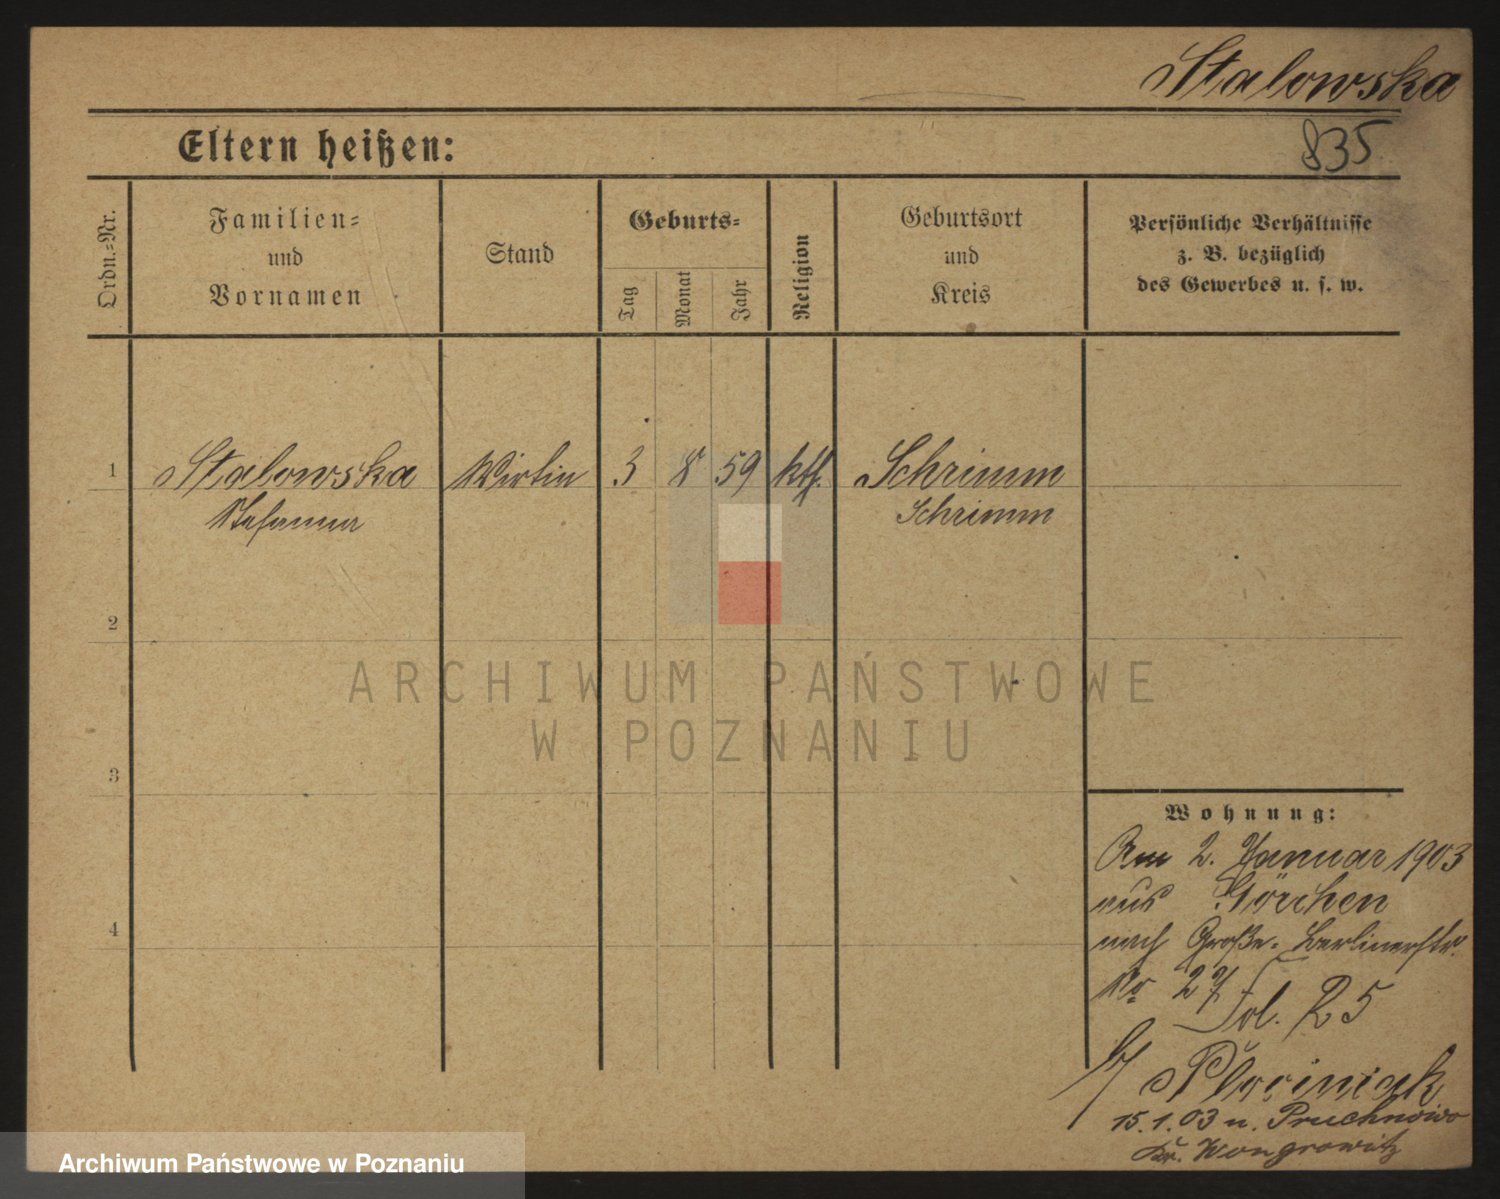 Stalowska
835
Eltern heißen:
Ordn.-Nr.
Familien-
und
Vornamen
Stand
Geburts-
Tag
Monat
Jahr
Religion
Geburtsort
und
Kreis
Persönliche Verhältnisse
z. B. bezüglich
des Gewerbes u. s. w.
1 Stalowska Wirtin 3 8 59 kth. Schrimm
Stefanna Schrimm
2
ARCHIWUM PAŃSTWOWE
W POZNANIU
3
Wohnung:
Am 2. Januar 1903
aus Görchen
4
nach Große- Berlinerstr.
No 27
Fol. R 5
b/ Płociniak
15.1.03 n. Pruchnowo
Kr. Wongrowitz
Archiwum Państwowe w Poznaniu